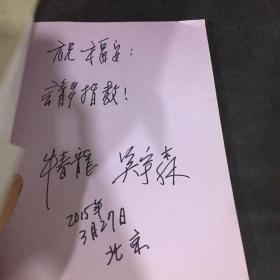 祝福安：
請多指教！
龍 吴 森
2015年
3月27日
北京